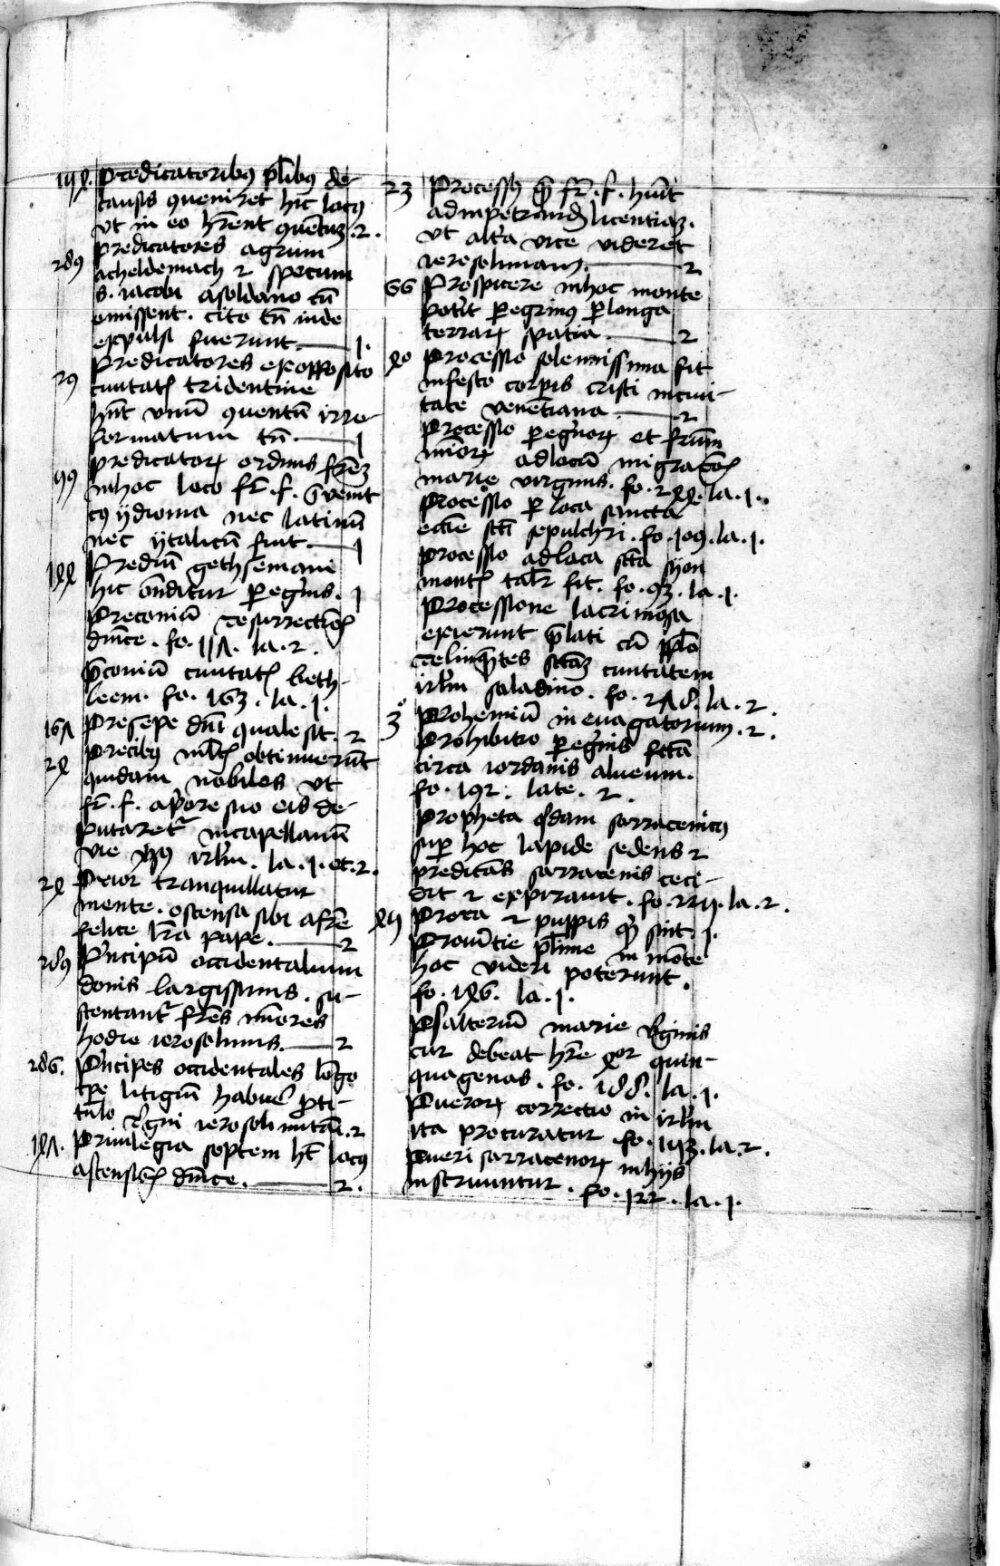 Predicatoribus plibus de
causis queniret hic locus
vt in eo hrent quentum . 2 .
289 predicatores agrum
acheldemach et specum
S. iacobi a soldano cum
emissent . cito tn inde
expulsi fuerunt . 1 .
29 Predicatores ex opposito
ciuitatis tridentine
hnt vnum quentum irre-
formatum tn . 1
99 predicatorum ordinis frem
in hoc loco fr . f .
cuius ydioma nec latinum
nec ytalicum fuit . 1
Predium gethsemani
hic onditur peregrinis . 1
Preconium resurrectionis
dnice . fo . 117 . la . 2 .
preconium ciuitatis beth-
leem . fo . 163 . la . 1 .
167 Presepe dni quale sit . 2
24 Precibus multis obtinuerunt
quidam nobiles vt
fr . f . a priore suo eis de-
putaretur in capellanum
vie irlm . la . 1 . et . 2 .
24 Prior tranquillatur
mente . ostensa sibi a fre
felice lra pape . 2
289 Principum occidentalium
donis largissimis . su-
stentantur fres minores
hodie ierosolimis . 2
286 . Principes occidentales longo
tpe litigium habuerunt pro ti-
tulo regni ierosolimitani . 2
147 . Priuilegia septem ht locus
ascensionis dnice . 2 .
23 Processus fr . f . huit
ad impetrandum licentiam .
vt altera vice videret
ierosolimam . 2
66 Prospicere in hoc monte
potit peregrinus per longa
terrarum spatia . 2
40 Processio solemnissima fit
in festo corporis cristi in ciui-
tate venetiana . 2
Processio peregrinorum et fratrum
minorum ad locum migrationis
marie virginis . fo . 244 . la . 1 .
Processio per loca sancta
ecclie scti sepulchri . fo . 109 . la . 1 .
Processio ad loca scta syon
montis taliter fit . fo . 93 . la . 1 .
Processione lacrimosa
exierunt prelati cum pplo
relinquentes sctam ciuitatem
irlm saladino . fo . 278 . la . 2 .
3 Prohemium in euagatorium . 2 .
Prohibitio peregrinis facta
circa iordanis alueum .
fo . 192 . late . 2 .
Propheta quidam sarracenicus
super hoc lapide sedens et
predicans sarracenis ceci-
dit et expirauit . fo . 222 . la . 2 .
Prora et puppis quid sint . 1 .
Prouintie plime in monte
hoc videri poterunt .
fo . 146 . la . 1 .
Psalterium marie virginis
cur debeat hre quin-
quagenas . fo . 188 . la . 1 .
Puerorum correctio in irlm
ita procuratur . fo . 113 . la . 2 .
Pueri sarracenorum in hijs
instruuntur . fo . 122 . la . 1 .